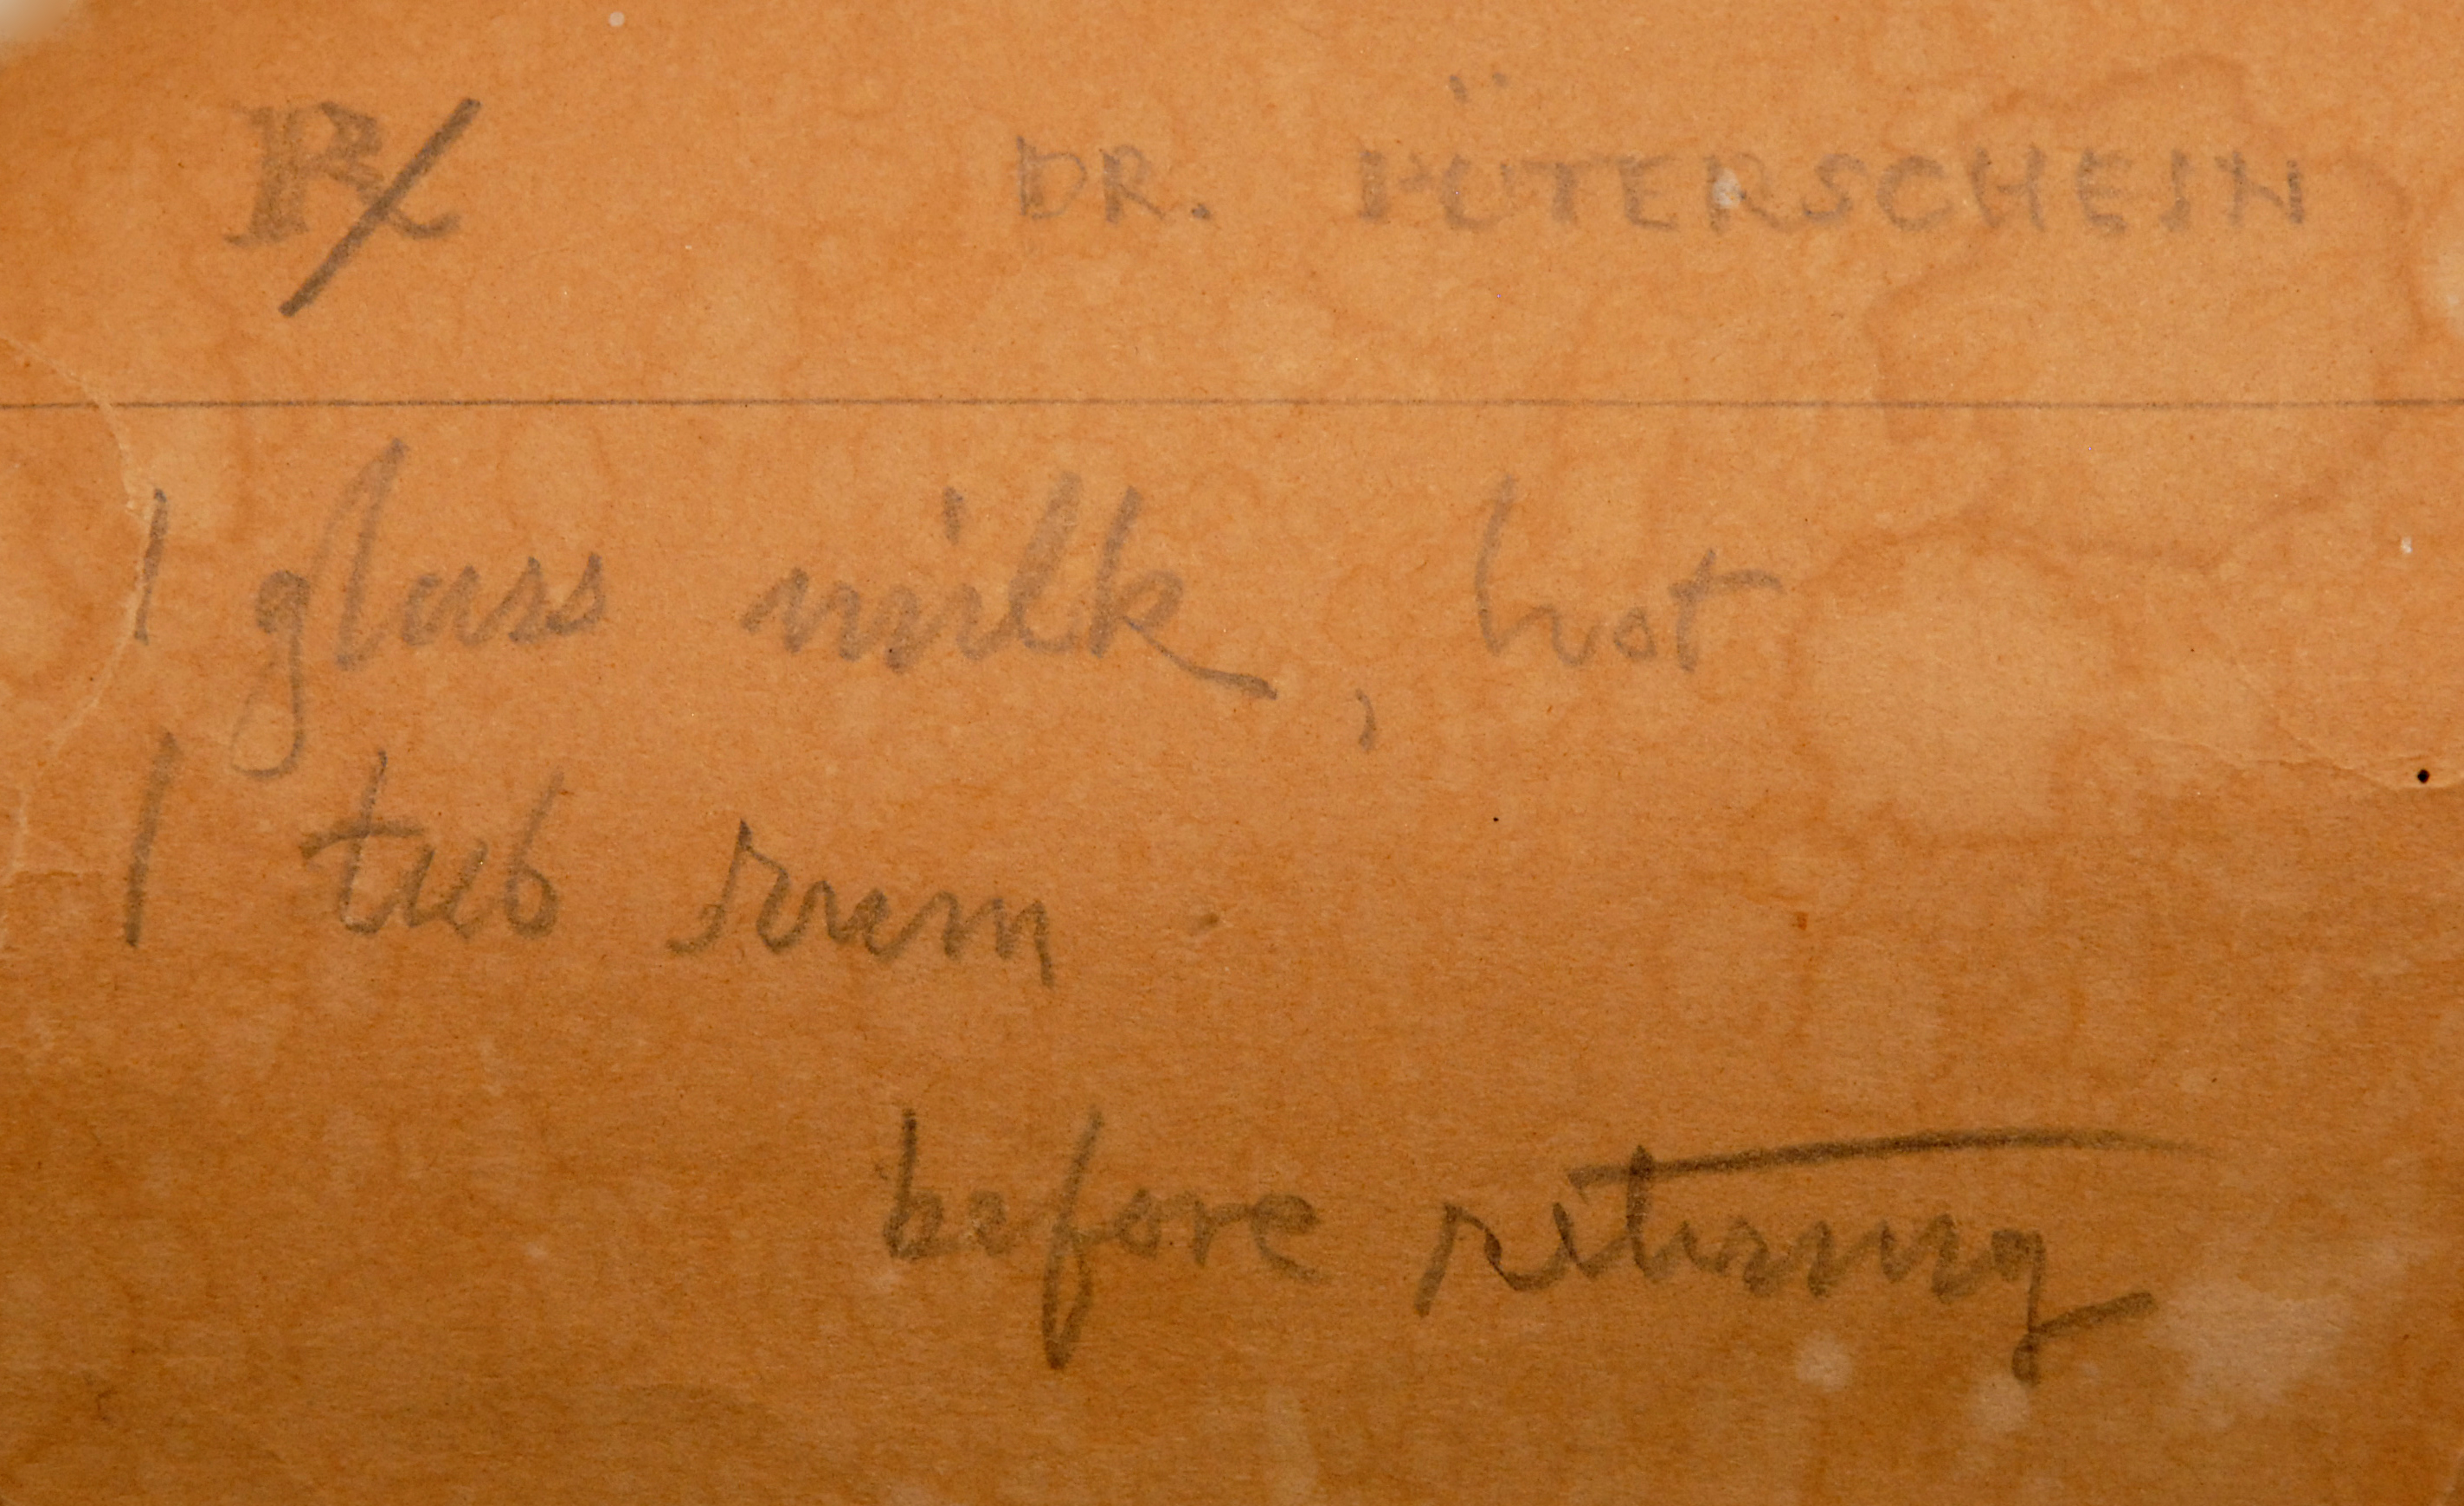 ℞ DR. PÜTERSCHEIN
1 glass milk, hot
1 tub rum
before retiring